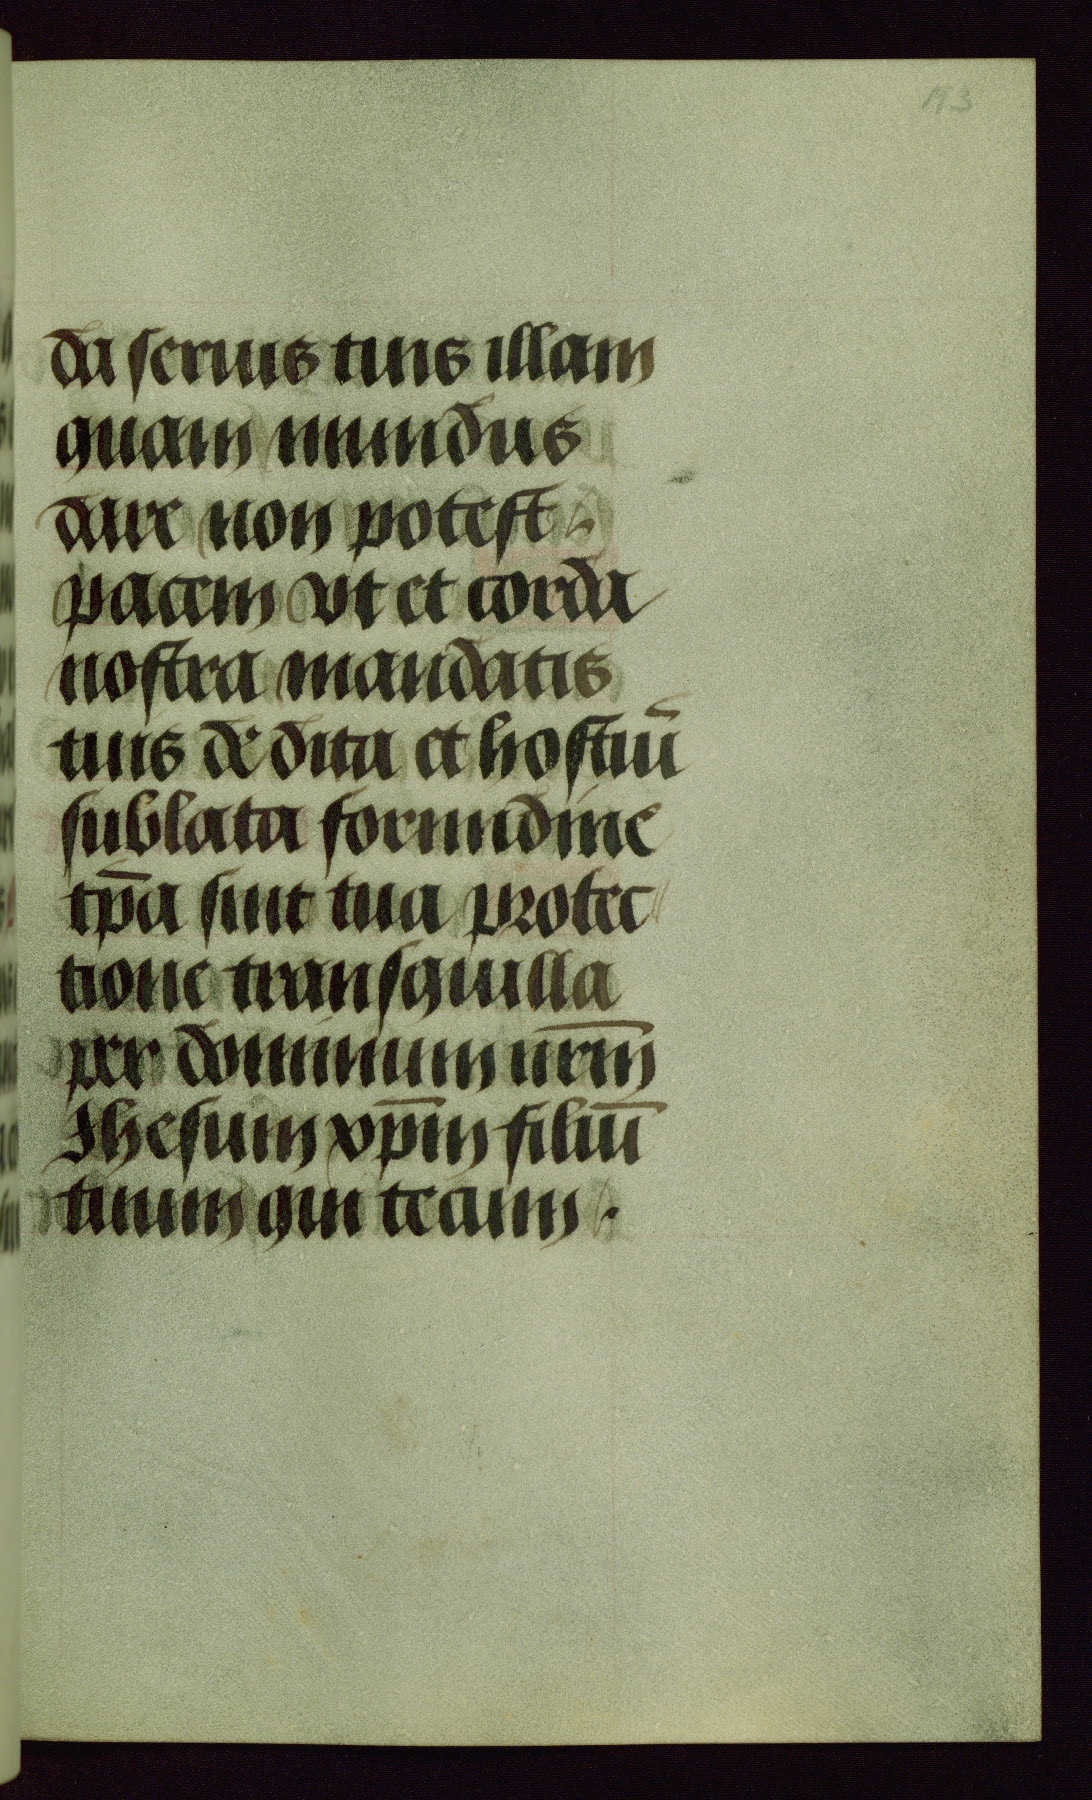 193
da seruis tuis illam
quam mundus
dare non potest.
pacem vt et corda
nostra mandatis
tuis dedita et hostiū
sublata formidine
tp̄a sint tua protec
tione transquilla
per dominum nr̄m
Ihesum xp̄m filiū
tuum qui tecum.